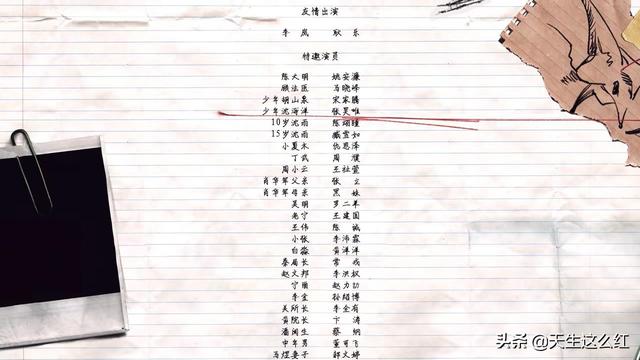 友情出演
李岚 耿乐
特邀演员
陈大明 姚安濂
顾法医 马晓峰
少年胡山泉 宋家腾
少年沈海洋 张昊唯
10岁沈雨 陈翊曈
15岁沈雨 臧萱如
小夏木 仇恩泽
丁武 周濮
周小云 王祉萱
肖华军父亲 张立
肖华军母亲 黑妹
吴明 罗二羊
老宁 王建国
王伟 陈诚
小张 李沛霖
白淼 黄洋洋
秦局长 常戎
赵文邦 李洪权
宁顺 赵力
李宝 孙绍博
关所长 李金有
黄院长 卞涛
潘润生 蔡纲
中年男 董可飞
马煜妻子 郭文婷
头条 @天生这么红